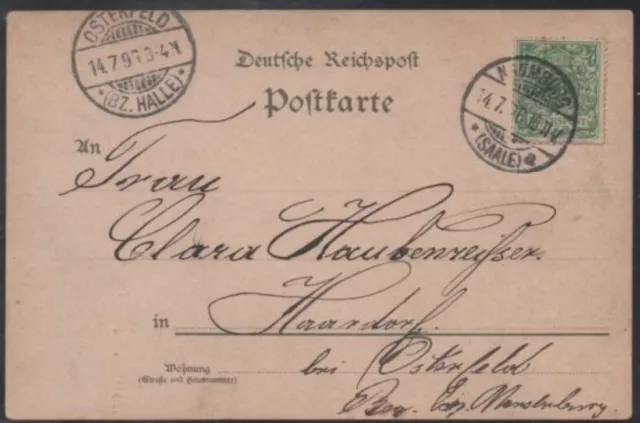 OSTERFELD
14.7.9 3-4N
* (BZ. HALLE) *
Deutsche Reichspost
Postkarte
NAUMBURG
14.7.
* (SAALE) a
An
Frau
Clara Haubenreißer.
in Haardorf
Wohnung
(Straße und Hausnummer)
bei Osterfeld
Bez. Merseburg